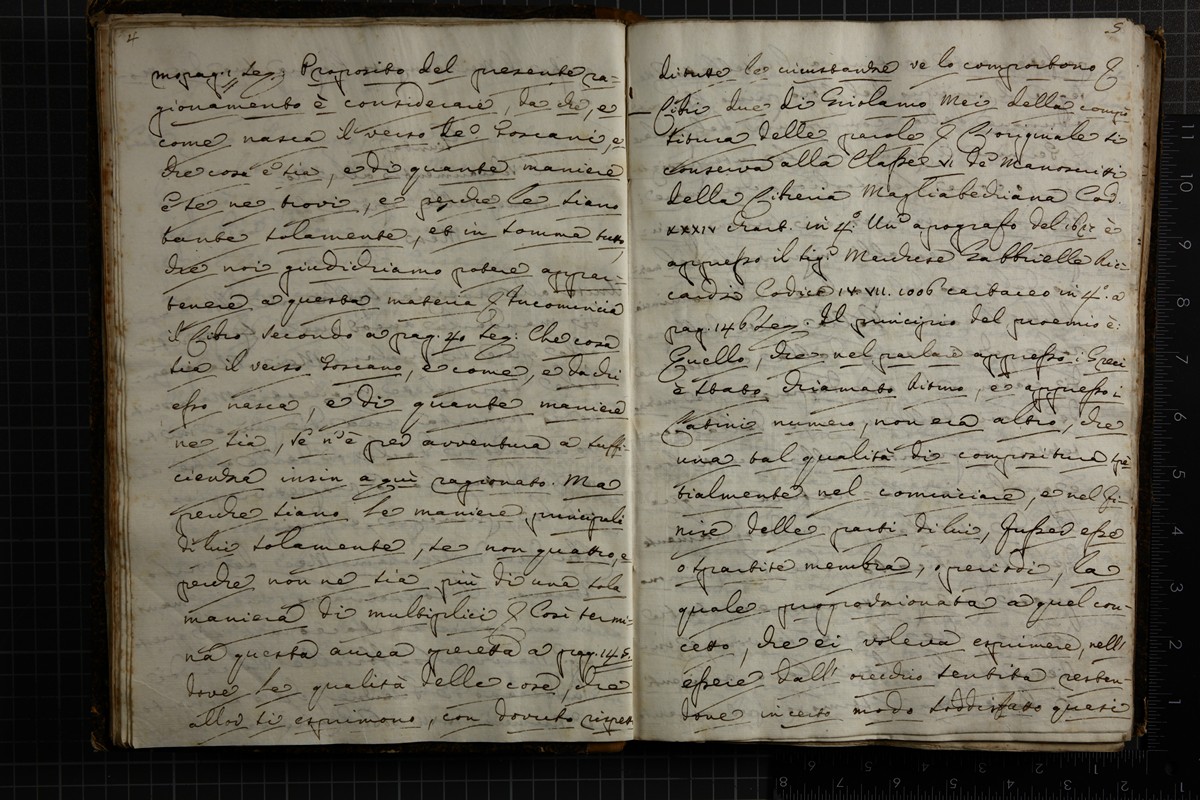 4
mo pag. 1 seg. Proposito del presente ra-
gionamento è considerare, da che, e
come nasca il verso de' Toscani, e
che cosa e' sia, e di quante maniere
e' se ne trovi, e perche le siano
tante solamente, et in somma tutto,
che noi giudichiamo potere appar-
tenere a questa materia & Incomincia
il Libro secondo a pag. 40 seg: Che cosa
sia il verso Toscano, e come, e da chi
esso nasca, e di quante maniere
ne sia, se n'è per avventura a suffi-
cienza insin a qui ragionato. Ma
perche siano le maniere principali
di lui solamente, se non quattro, e
perche non ne sia più di una sola
maniera di multiplici & Così termi-
na questa aurea operetta a pag. 145.
dove le qualità delle cose, che
allor si esprimono, con dovuto rispet
5
di tutte le circustanze ve lo comportono &
Libri due di Girolamo Mei della compo
situra delle parole & L'originale si
conserva alla Classe VI da Manoscritti
della Libreria Magliabechiana Cod.
XXXIV chart. in 4.º Un apografo del è
appresso il Sigr Marchese Gabbrielle Ric-
cardi Codice IV VII. 1006 cartaceo in 4.º a
pag. 146 seg. Il principio del proemio è:
Quello, che nel parlare appresso i Greci
è stato chiamato Ritmo, e appresso i
Latini numero, non era altro, che
una tal qualità di compositura spe
tialmente nel cominciare, e nel fi-
nire delle parti di lui, fusser esse
o spartite membra, o periodi, la
quale proporzionata a quel con-
cetto, che ei voleva esprimere, nell'
essere dall' orecchio sentita resten-
dove in certo modo soddisfatto quasi